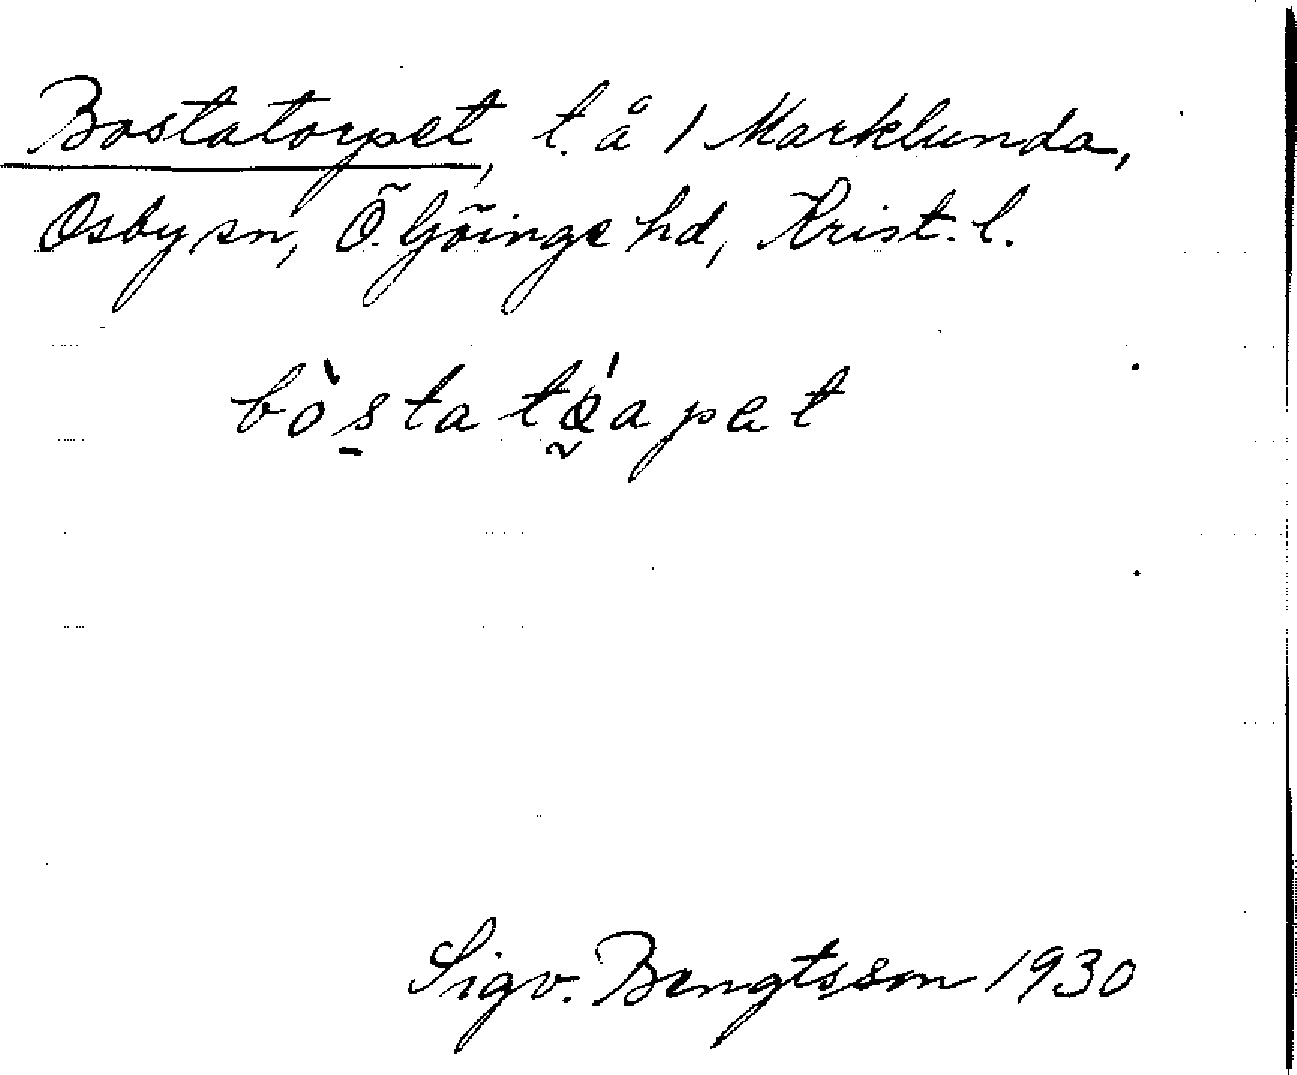 Bostatorpet, t. å 1 Marklunda,
Osby sn, Ö. Göinge hd, Krist. l.
bòs̠tatǿ̰apet
Sigv. Bengtsson 1930